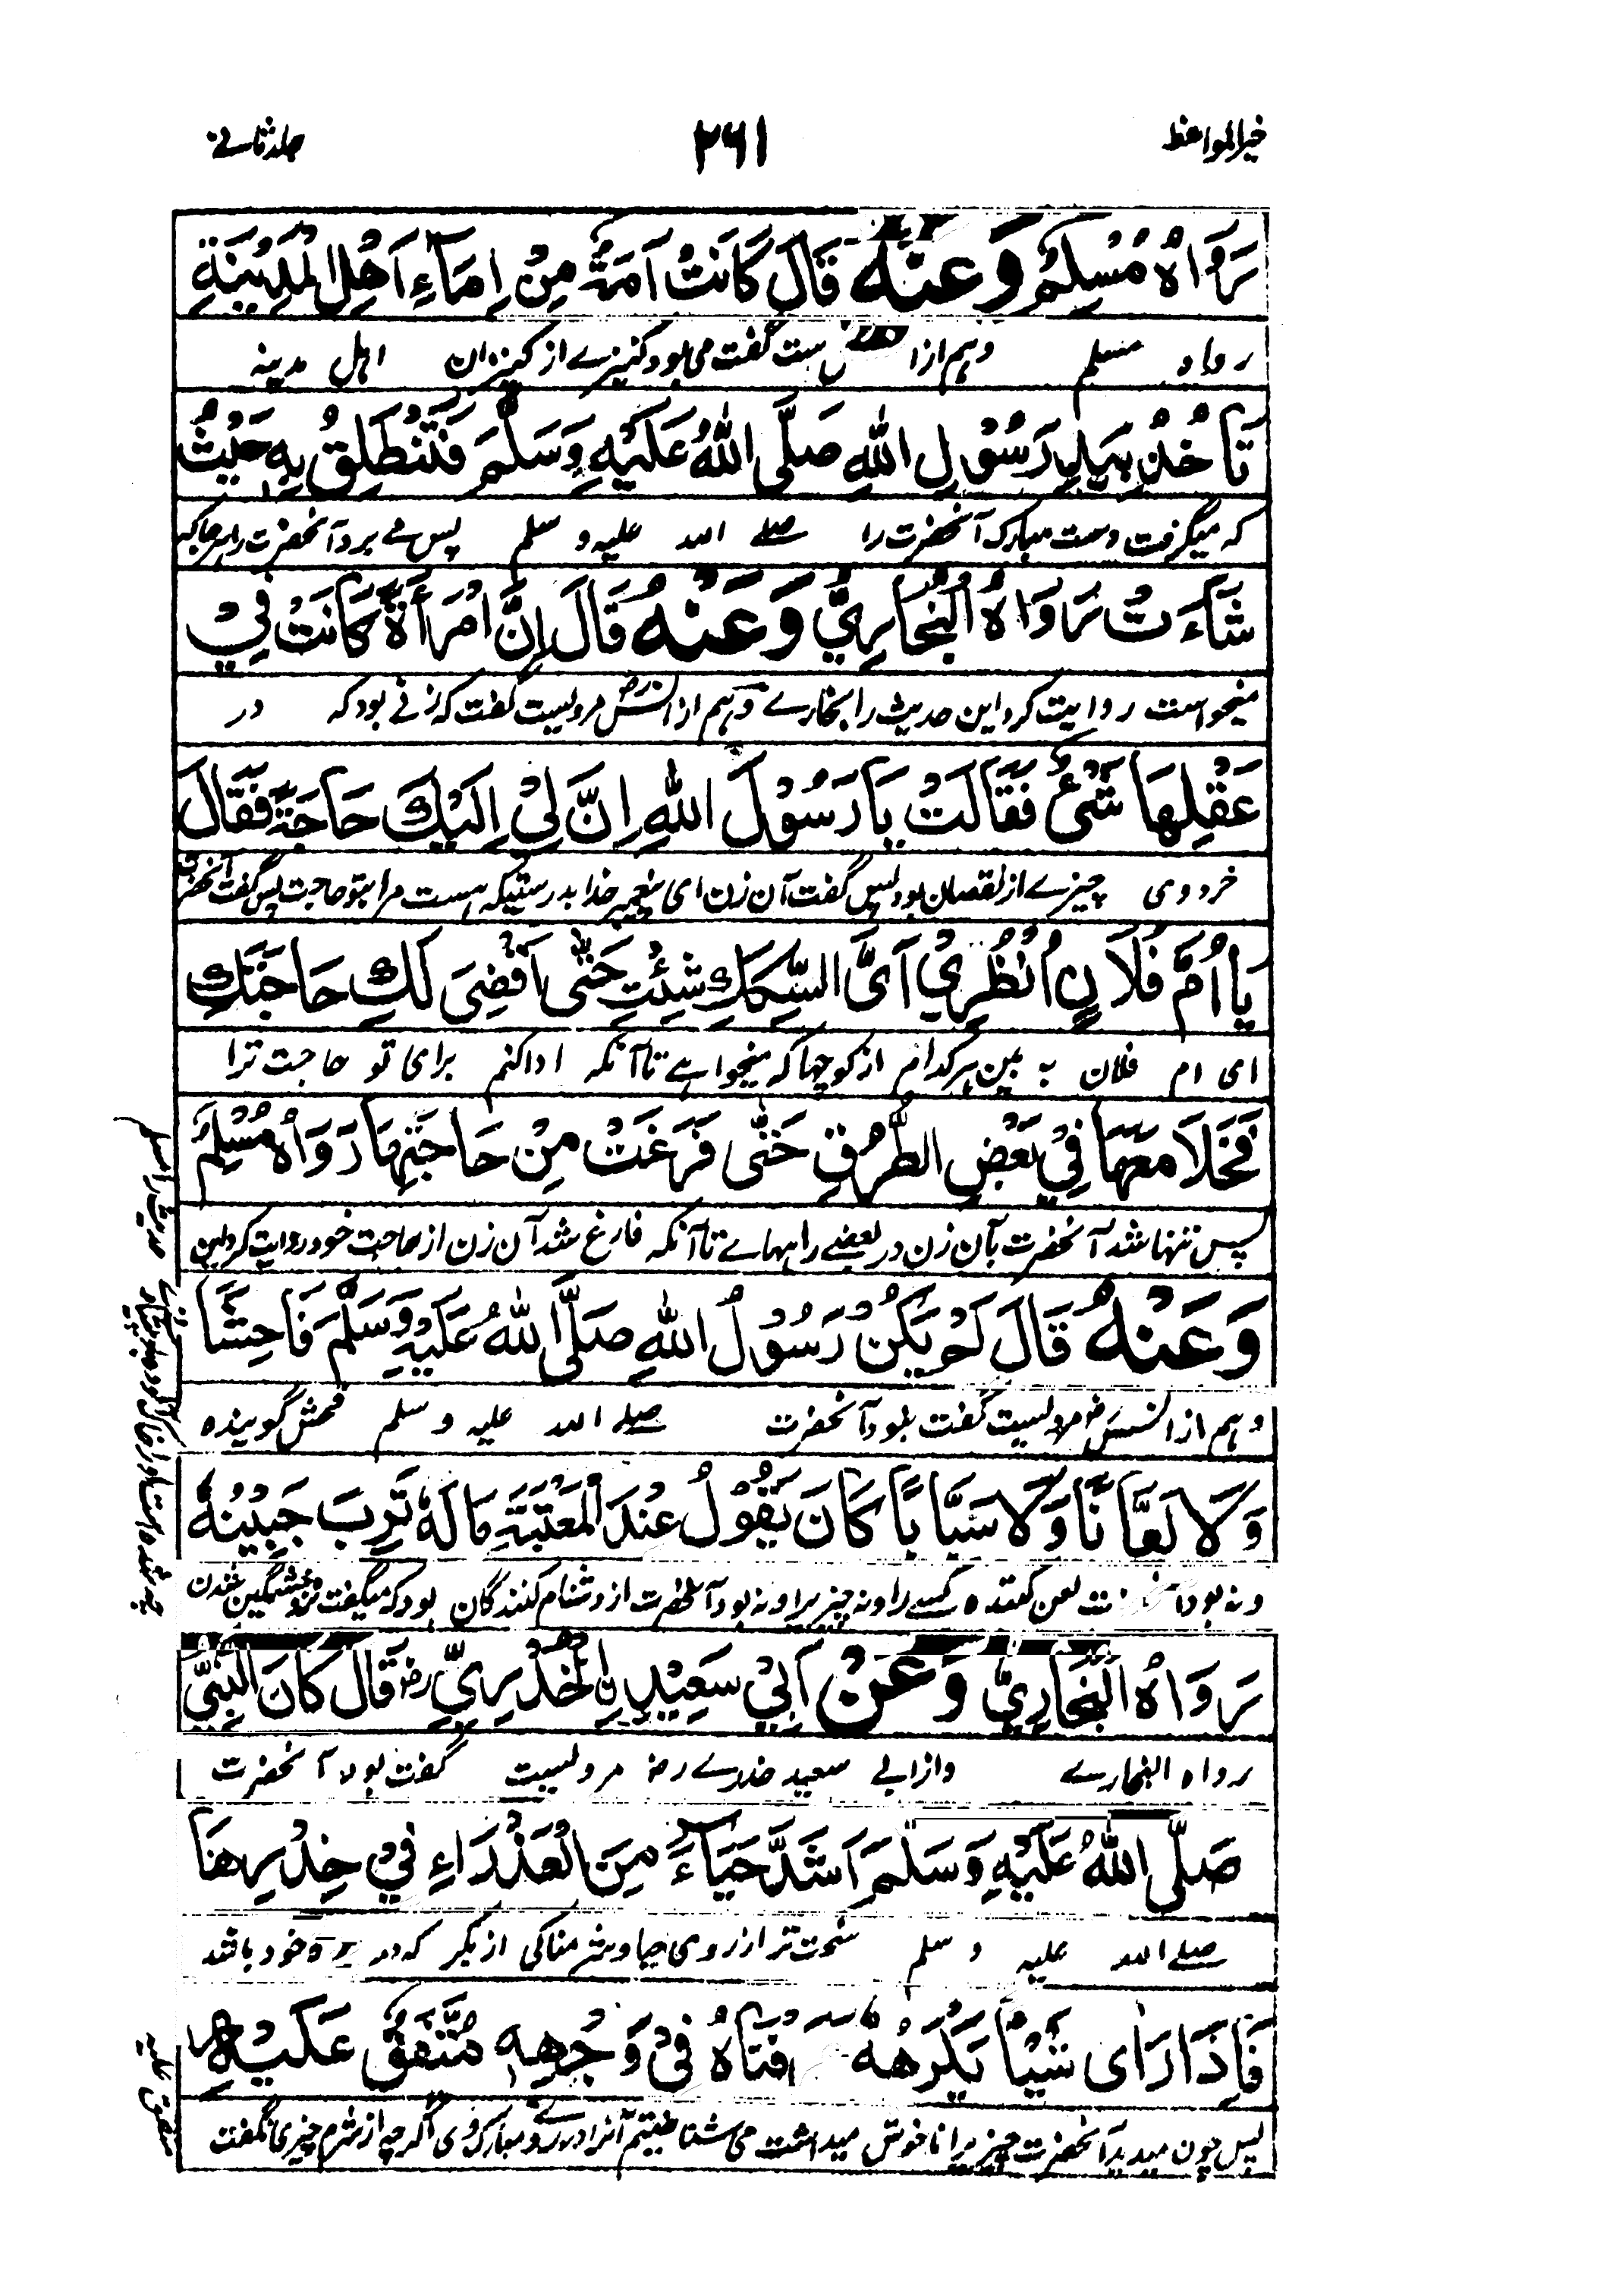 خیرالمواعظ
۲۶۱
جلد ثانی
رَوَاهُ مُسْلِمٌ وَعَنْهُ قَالَ كَانَتْ اَمَةٌ مِنْ اِمَاءِ اَهْلِ الْمَدِيْنَةِ
رواه مسلم وهم از ست گفت می بود کنیزے از کنیزان اهل مدینه
تَاْخُذُ بِيَدِ رَسُوْلِ اللّٰهِ صَلَّى اللّٰهُ عَلَيْهِ وَسَلَّمَ فَتَنْطَلِقُ بِهِ حَيْثُ
که میگرفت دست مبارک آنحضرت را صلے الله علیه و سلم پس مے برد آنحضرت را هرجا که
شَاءَتْ رَوَاهُ الْبُخَارِيُّ وَعَنْهُ قَالَ اِنَّ امْرَأَةً كَانَتْ فِيْ
میخواست روایت کرد این حدیث را بخارے وهم از انس رض مرویست گفت که زنے بود که در
عَقْلِهَا شَيْءٌ فَقَالَتْ يَا رَسُوْلَ اللّٰهِ اِنَّ لِيْ اِلَيْكَ حَاجَةً فَقَالَ
خرد وی چیزے از نقصان بود پس گفت آن زن ای پیغمبر خدا بدرستیکه هست مرا بتو حاجت پس گفت آنحضرت
يَا اُمَّ فُلَانٍ اُنْظُرِيْ اَيَّ السِّكَكِ شِئْتِ حَتّٰى اَقْضِيَ لَكِ حَاجَتَكِ
ای ام فلان به بین هر کدام از کوچها که میخواهے تا آنکه ادا کنم برای تو حاجت ترا
فَخَلَا مَعَهَا فِيْ بَعْضِ الطُّرُقِ حَتّٰى فَرَغَتْ مِنْ حَاجَتِهَا رَوَاهُ مُسْلِمٌ
پس تنها شد آنحضرت بآن زن در بعضے راههاے تا آنکه فارغ شد آن زن از حاجت خود روایت کرد این
حدیث را مسلم
وَعَنْهُ قَالَ لَمْ يَكُنْ رَسُوْلُ اللّٰهِ صَلَّى اللّٰهُ عَلَيْهِ وَسَلَّمَ فَاحِشًا
وهم از انس رض مرویست گفت نبود آنحضرت صلے الله علیه و سلم فحش گوینده
وَلَا لَعَّانًا وَلَا سَبَّابًا كَانَ يَقُوْلُ عِنْدَ الْمَعْتَبَةِ مَا لَهٗ تَرِبَ جَبِيْنُهٗ
ونه بود لعن کننده کسے را و نه چیزیرا و نه بود آنحضرت از دشنام کنندگان بود که میگفت نزد خشمگین شدن
چه شده است او را خاک آلود باد
رَوَاهُ الْبُخَارِيُّ وَعَنْ اَبِيْ سَعِيْدِنِ الْخُدْرِيِّ رض قَالَ كَانَ النَّبِيُّ
رواه البخارے و از ابی سعید خدرے رض مرویست گفت بود آنحضرت
صَلَّى اللّٰهُ عَلَيْهِ وَسَلَّمَ اَشَدَّ حَيَاءً مِنَ الْعَذْرَاءِ فِيْ خِدْرِهَا
صلے الله علیه و سلم سخت تر از روی حیا و شرمناکی از بکر که در خود باشد
فَاِذَا رَاٰى شَيْئًا يَكْرَهُهٗ فْنَاهُ فِيْ وَجْهِهٖ مُتَّفَقٌ عَلَيْهِ
پس چون میدید آنحضرت چیزیرا ناخوش میداشت می شناختیم آنرا در روے مبارک وی اگرچه از شرم چیزی نگفت
متفق علیه